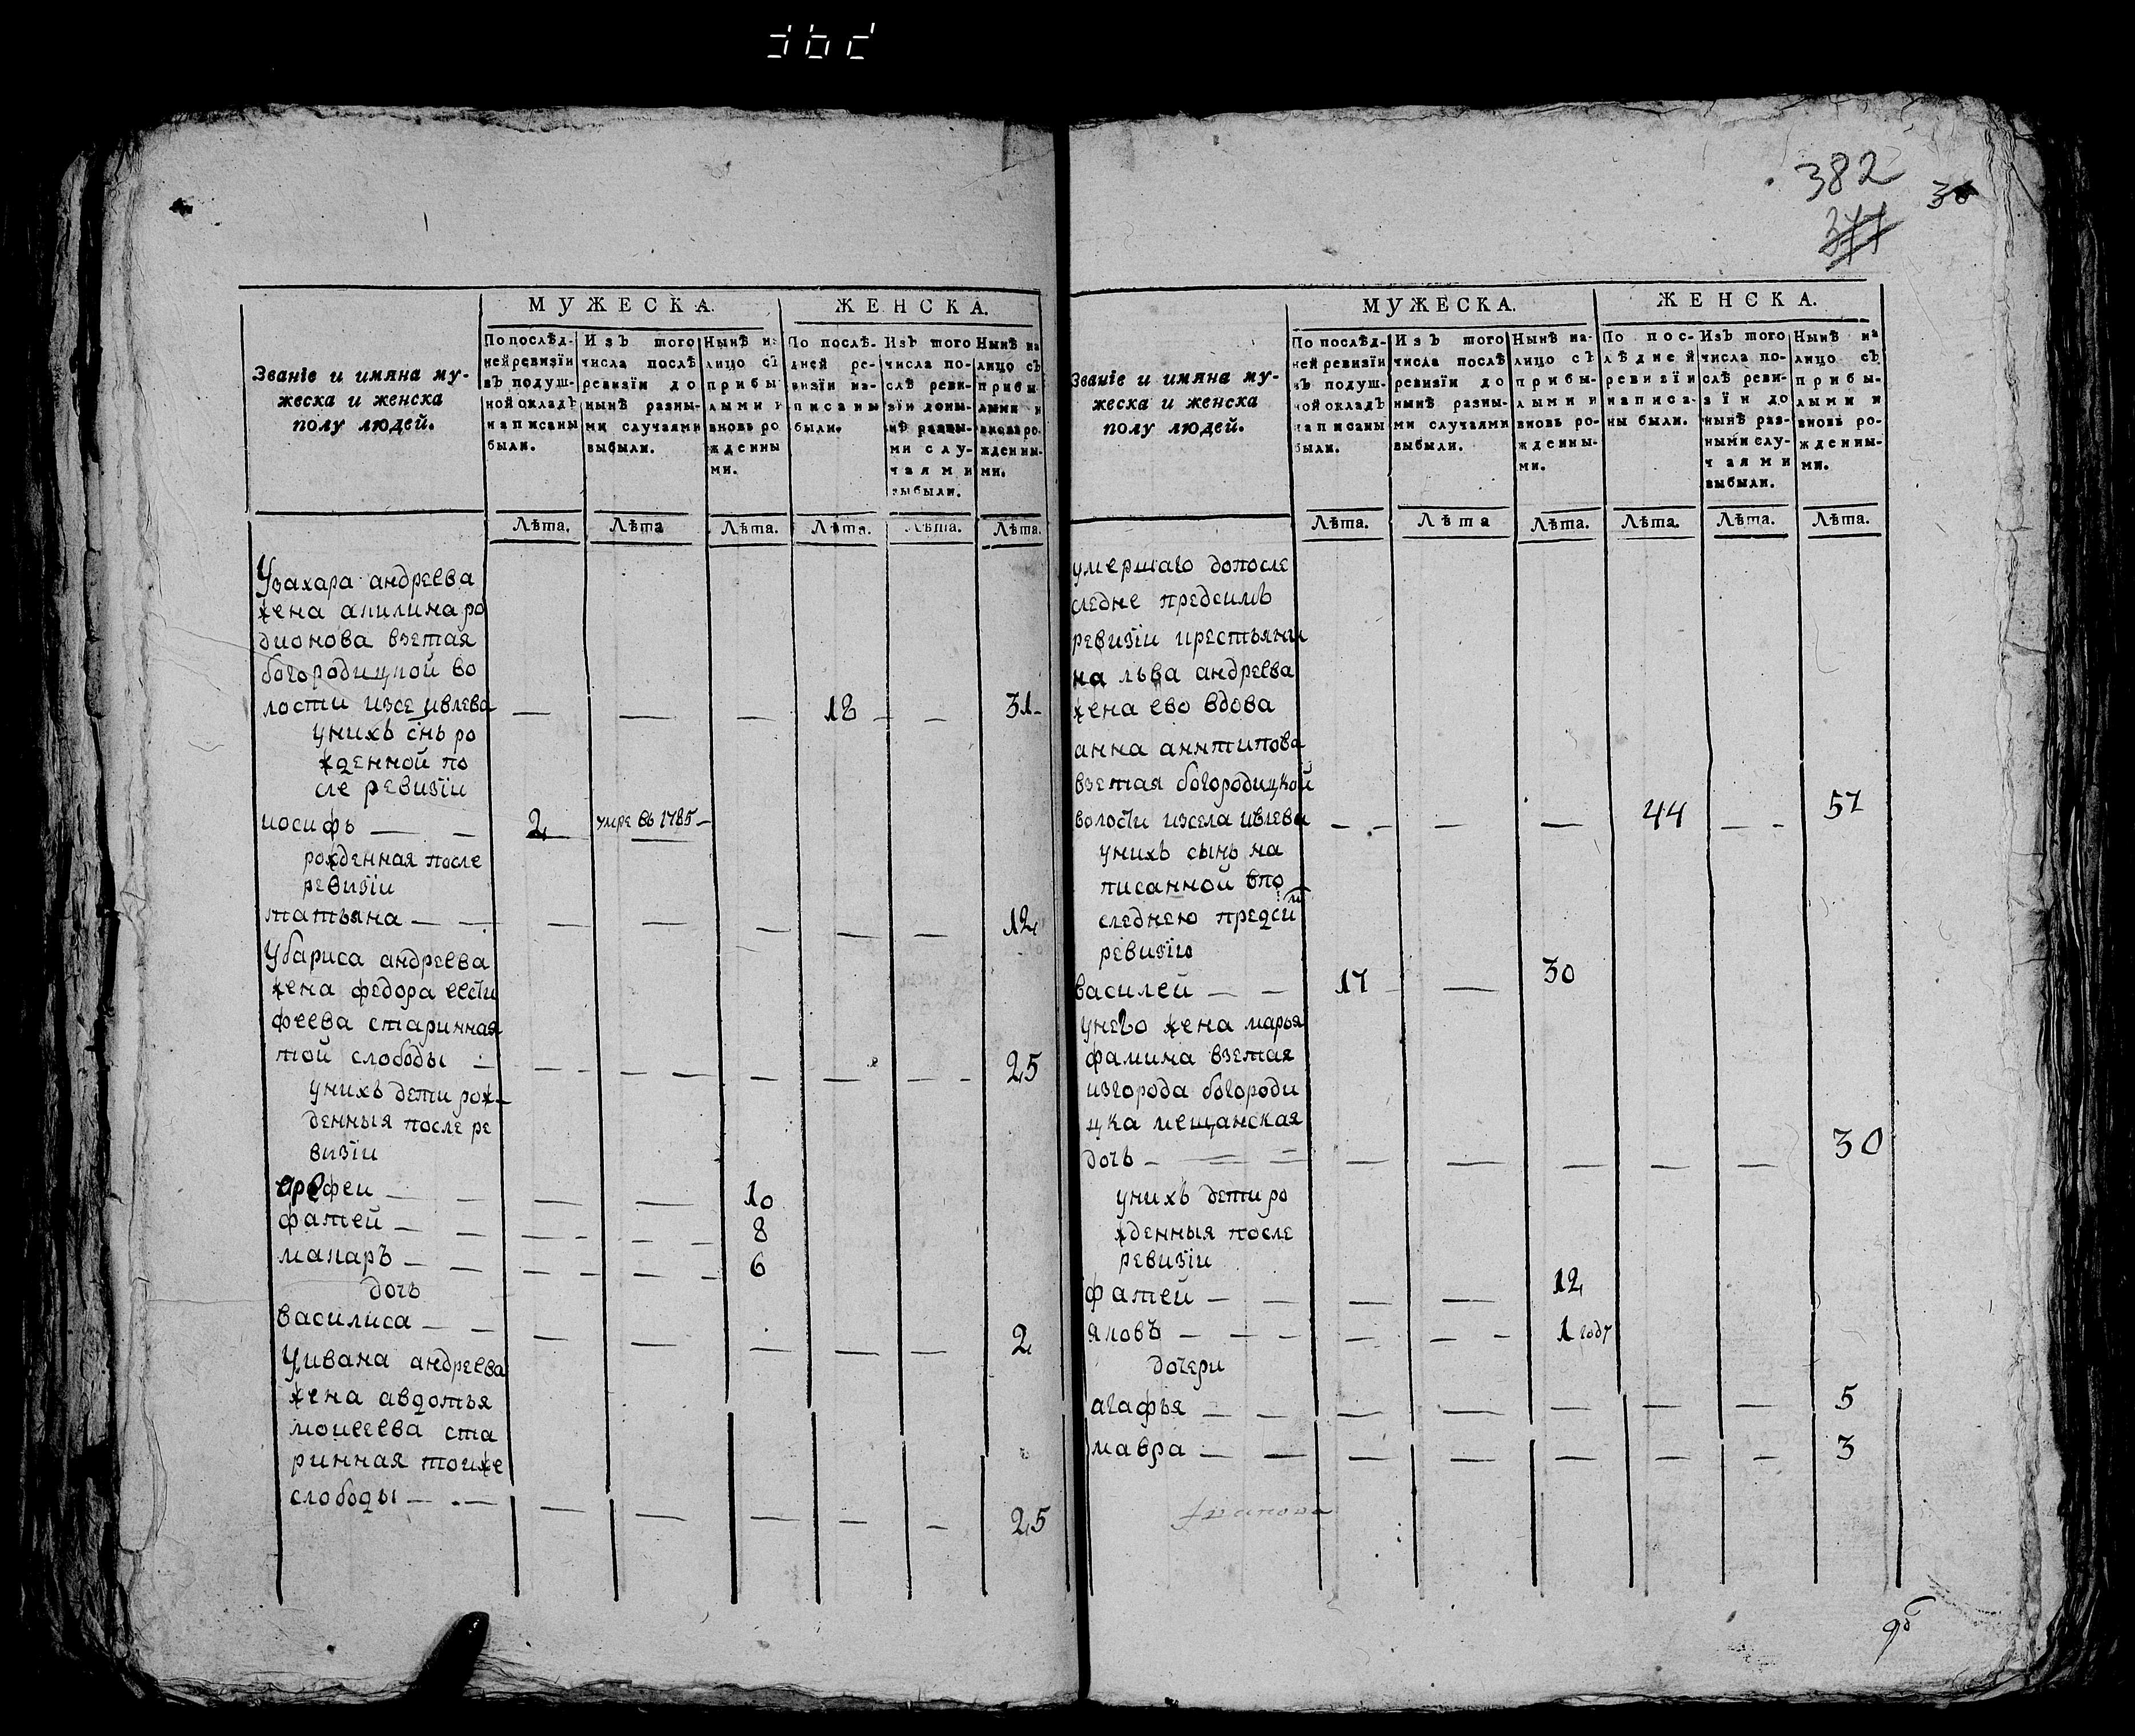 382
36
377
Званіе и имяна му-
жеска и женска
полу людей.
МУЖЕСКА.
ЖЕНСКА.
По послѣд-
ней ревизіи
въ подуш-
ной окладъ
написаны
были.
Изъ того
числа послѣ
ревизіи до
нынѣ разны-
ми случаями
выбыли.
Нынѣ на
лицо съ
прибы
лыми и
вновь ро
жденны
ми.
По послѣ-
дней ре-
визіи на-
писаны
были.
Изъ того
числа по-
слѣ реви-
зіи доны-
нѣ разны-
ми слу-
чаями
выбыли.
Нынѣ на
лицо съ
прибы
лыми и
вновь ро-
жденны-
ми.
Лѣта. Лѣта Лѣта. Лѣта. Лѣта. Лѣта.
Узахара андреева
жена акилина ро
дионова взетая
богородицкой во
лости изсе ивлева — — — 18 — — 31
уних снъ ро
жденной по
сле ревизіи
иосифъ — — 2 умре въ 1785 —
рожденная после
ревизіи
татьяна — — — — — — — 12
Убариса андреева
жена федора евсти
феева старинная
той слободы — — — — — — — 25
унихъ дети рож-
денныя после ре
визіи
ерофеи — — — — 10
фатей — — — — 8
макаръ — — — — 6
дочь
василиса — — — — — — — 2
Уивана андреева
жена авдотья
моисеева ста
ринная тоиже
слободы — — — — — — — 25
Званіе и имяна му-
жеска и женска
полу людей.
МУЖЕСКА.
ЖЕНСКА.
По послѣд-
ней ревизіи
въ подуш-
ной окладъ
написаны
были.
Изъ того
числа послѣ
ревизіи до
нынѣ разны-
ми случаями
выбыли.
Нынѣ на-
лицо съ
прибы-
лыми и
вновь ро-
жденны-
ми.
По пос-
лѣдней
ревизіи
написа-
ны были.
Изъ того
числа по-
слѣ реви-
зіи до
нынѣ раз-
ными слу-
чаями
выбыли.
Нынѣ на
лицо съ
прибы-
лыми и
вновь ро-
жденны-
ми.
Лѣта. Лѣта Лѣта. Лѣта. Лѣта. Лѣта.
умершаго допосле
следне предсимъ
ревизіи крестьяни
на льва андреева
жена ево вдова
анна антипова
взетая богородицкой
волости изсела ивлева — — — — 44 — — 57
унихъ сынъ на
писанной впо
следнею предсий
ревизію
василей — — 17 — 30
унего жена марья
фамина взетая
изгорода богороди
цка мещанская
дочь — — — — — — — — 30
унихъ дети ро
жденныя после
ревизіи
фатей — — — — 12
яковъ — — — — — — 1 году
дочери
агафья — — — — — — — 5
мавра — — — — — — — 3